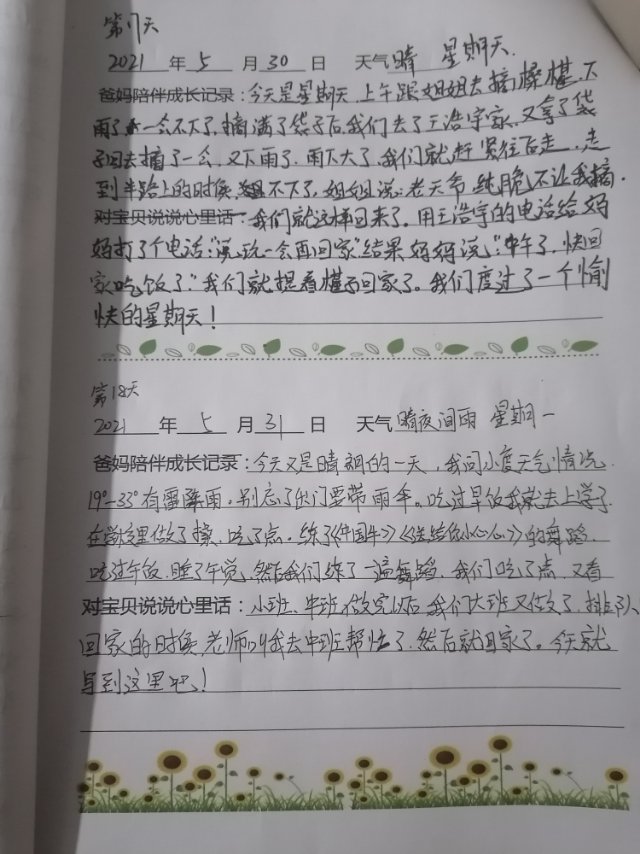 第17天
2021 年 5 月 30 日 天气 晴 星期天.
爸妈陪伴成长记录:今天是星期天,上午跟姐姐去摘桑椹,下
雨了 一会不下了,摘满了袋子后我们去了王浩宇家,又拿了袋
子回去摘了一会,又下雨了,雨下大了,我们就赶紧往后走,走
到半路上的时候, 不下了,姐姐说:老天爷,纯脆不让我摘.
对宝贝说说心里话:我们就这样回来了.用王浩宇的电话给妈
妈打了个电话:"说玩一会再回家"结果妈妈说:"中午了,快回
家吃饭了"我们就提着椹子回家了。我们度过了一个愉
快的星期天!
第18天
2021 年 5 月 31 日 天气 晴夜间雨 星期一
爸妈陪伴成长记录:今天又是晴朗的一天,我问小度天气情况,
19°-33°有雷阵雨,别忘了出门要带雨伞。吃过早饭我就去上学了.
在学校里做了操,吃了点,练了《中国牛》《送给你小心心》的舞蹈.
吃过午饭,睡了午觉,然后我们练了一遍舞蹈,我们吃了点,又看
对宝贝说说心里话:小班、中班做完以后我们大班又做了,排队
回家的时候,老师叫我去中班帮忙了.然后就回家了。今天就
写到这里吧!